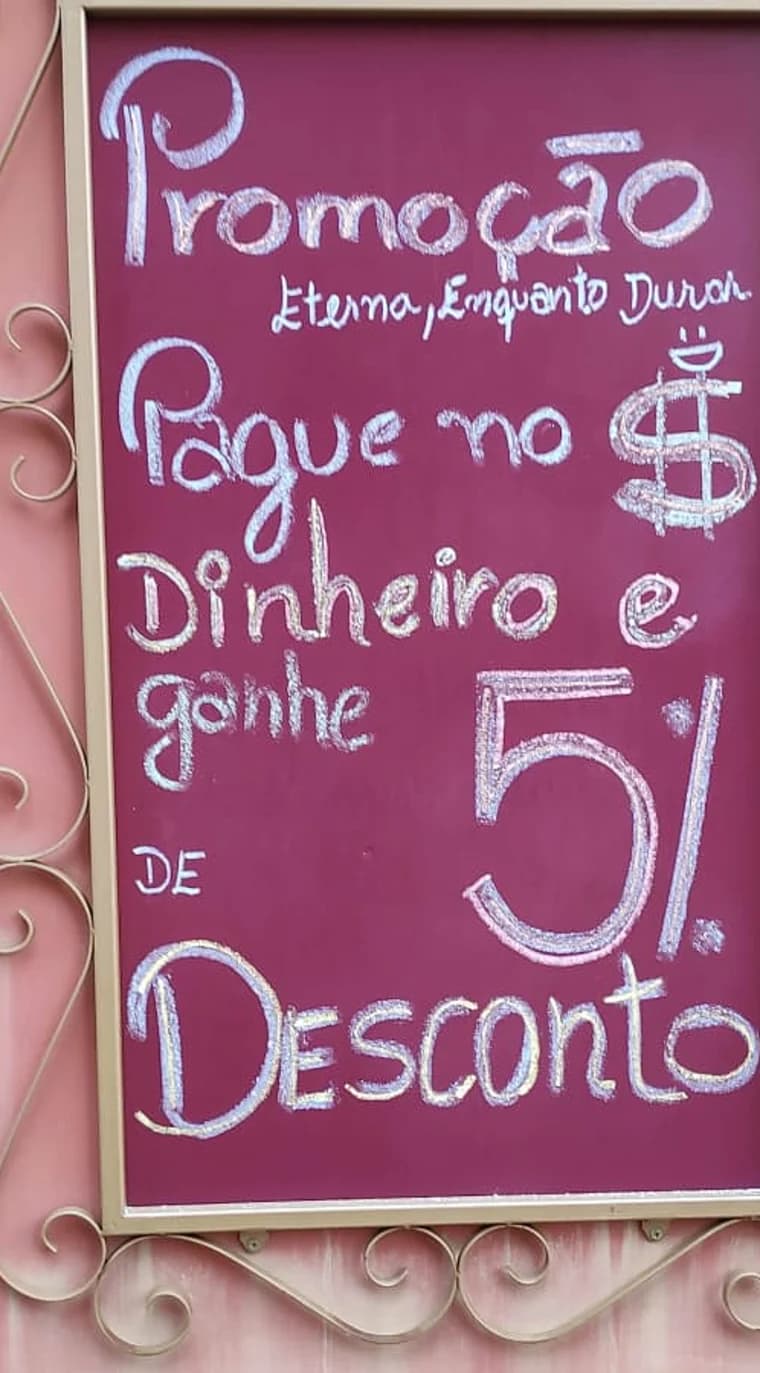 Promoção
Eterna, Enquanto Durar
Pague no $
Dinheiro e
ganhe 5%
DE
Desconto